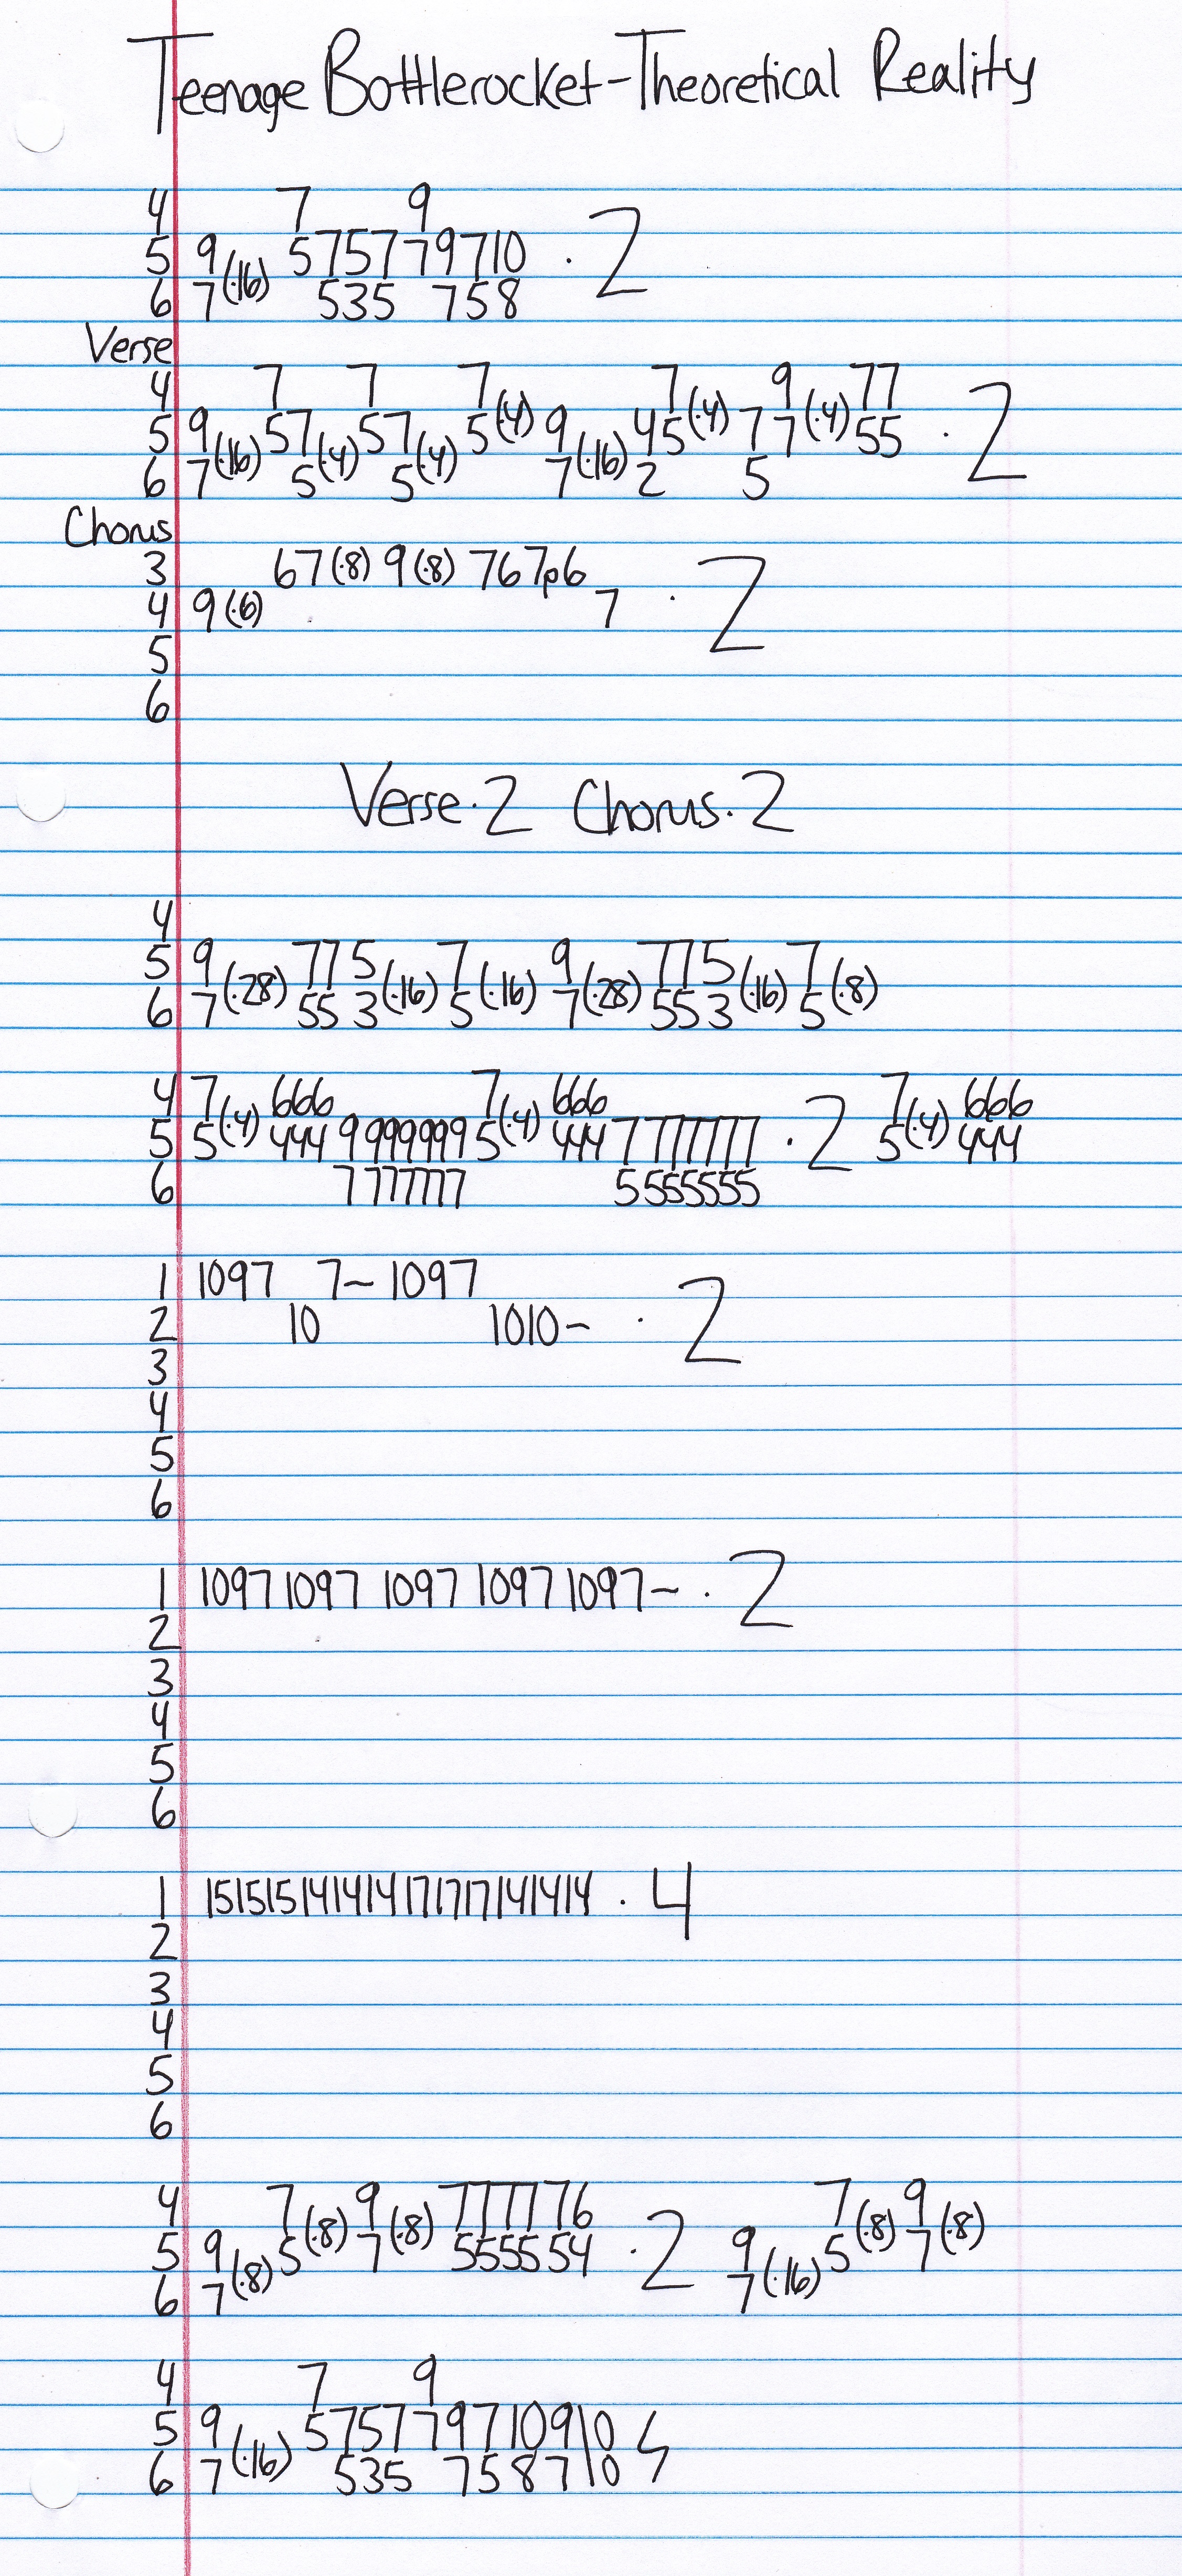 Teenage Bottlerocket-Theoretical Reality
4 7 9
5 9(·16) 5 7 5 7 7 9 7 10 · 2
6 7 5 3 5 7 5 8
Verse
4 7 7 7(·4) 7(·4) 9(·4) 7 7
5 9(·16) 5 7(·4) 5 7(·4) 5 9(·16) 4 5 7 7 5 5 · 2
6 7 5 5 7 2 5
Chorus
3 6 7(·8) 9(·8) 7 6 7p6
4 9(·6) 7 · 2
5
6
Verse·2 Chorus·2
4
5 9(·28) 7 7 5(·16) 7(·16) 9(·28) 7 7 5(·16) 7(·8)
6 7 5 5 3 5 7 5 5 3 5
4 7(·4) 666 7(·4) 666 7(·4) 666
5 5 444 9 9999999 5 444 7 777777 · 2 5 444
6 7 777777 5 5555555
1 1097 7~ 1097
2 10 1010~ · 2
3
4
5
6
1 1097 1097 1097 1097 1097~ · 2
2
3
4
5
6
1 151515141414171717141414 · 4
2
3
4
5
6
4 7(·8) 9(·8) 7777 76 7(·8) 9(·8)
5 9(·8) 5 7 5555 54 · 2 9(·16) 5 7
6 7 7
4 7 9
5 9(·16) 5 7 5 7 7 9 7 10 9 \0
6 7 5 3 5 7 5 8 7 \0